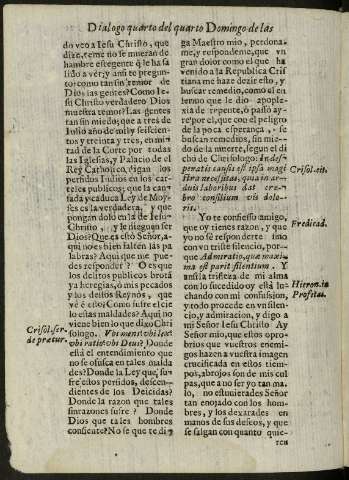 Dialogo quarto del quarto Domingo de las
do veo a Iesu Christo, que
dize, teme no se mueran de
hambre essa gente q̃ le ha sa
lido a vér; y assi te pregun-
to como tan sin temor de
Dios las gentes? Como Ie-
su Christo verdadero Dios
muestra temor? Las gentes
tan sin miedo; que a tres de
Iulio año de mil y seiscien-
tos y treinta y tres, en mi-
tad de la Corte por todas
las Iglesias, y Palacio del
Rey Catholico, fixan los
perfidos Iudios en los car-
teles publicos; que la can-
sada y caduca Ley de Moy-
ses es la verdadera, y que
pongan dolo en la de Iesu-
Christo, y le nieguen ser
Dios? Que es esto Señor, a-
qui no es bien falten las pa
labras? Aqui que me pue-
des responder? O es que
los delitos publicos hasta
ya heregias, ò mis pecados
y los delitos Reynos, que
vè esto? Como sufre el cie
lo estas maldades? Aqui no
viene bien lo que dixo Chri
sologo. Vbi mens? vbi lex?
vbi ratio? vbi Deus? Donde
està el entendimiento que
no se ofusca en tales malda
des? Donde la Ley que, su-
fre estos perfidos, descen-
dientes de los Deicidas?
Donde la razon que tales
sinrazones sufre? Donde
Dios que tales hombres
consiente? No se que te di-
Crisol. ser.
de prætur.
ga Maestro mio, perdona-
me, y respondeme, que vn
gran dolor como el que ha
venido a la Republica Cris
tiana me haze dezir esto, y
buscar remedio, como el en
fermo que le dio apople-
xia de repente, ò pasmo ay-
re por el, que con el peligro
de la poca esperança, se
buscan remedios, sin mie-
do de la muerte, segun el di
cho de Chrisologo: In des-
peratis causis est ipsa magi
stra necessitas, quia in ar-
duis laboribus dat cre-
bro consilium vis dolo-
ris.
Yo te confiesso amigo,
que oy tienes razon, y que
yo no sè responderte sino
con vn triste silencio, por-
que Admiratio, quæ maxi-
ma est parit silentium. Y
assi la tristeza de mi alma
con lo sucedido oy està lu-
chando con mi confusion,
y todo procede en vn silen-
cio, y admiracion, y digo a
mi Señor Iesu Christo: Ay
Señor mio, que estos opro-
brios que vuestros enemi-
gos hazen a vuestra imagen
crucificada en estos tiem-
pos, abrojos son de mis cul
pas, que a no ser yo tan ma-
lo, no estuvierades Señor
tan enojado con los hom-
bres, y los dexarades en
manos de sus deseos, y que
se salgan con quanto quie-
ren
Crisol. cit.
Predicad.
Hieron. in
Profetas.